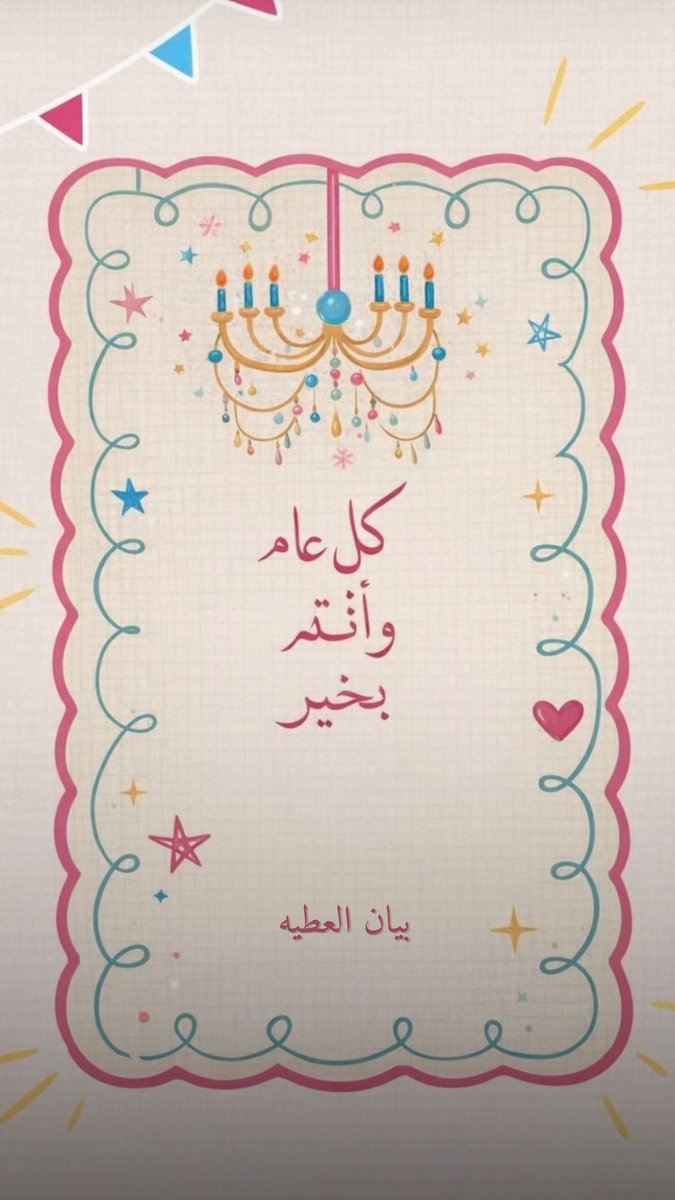 كل عام
وأنتم
بخير
بيان العطيه